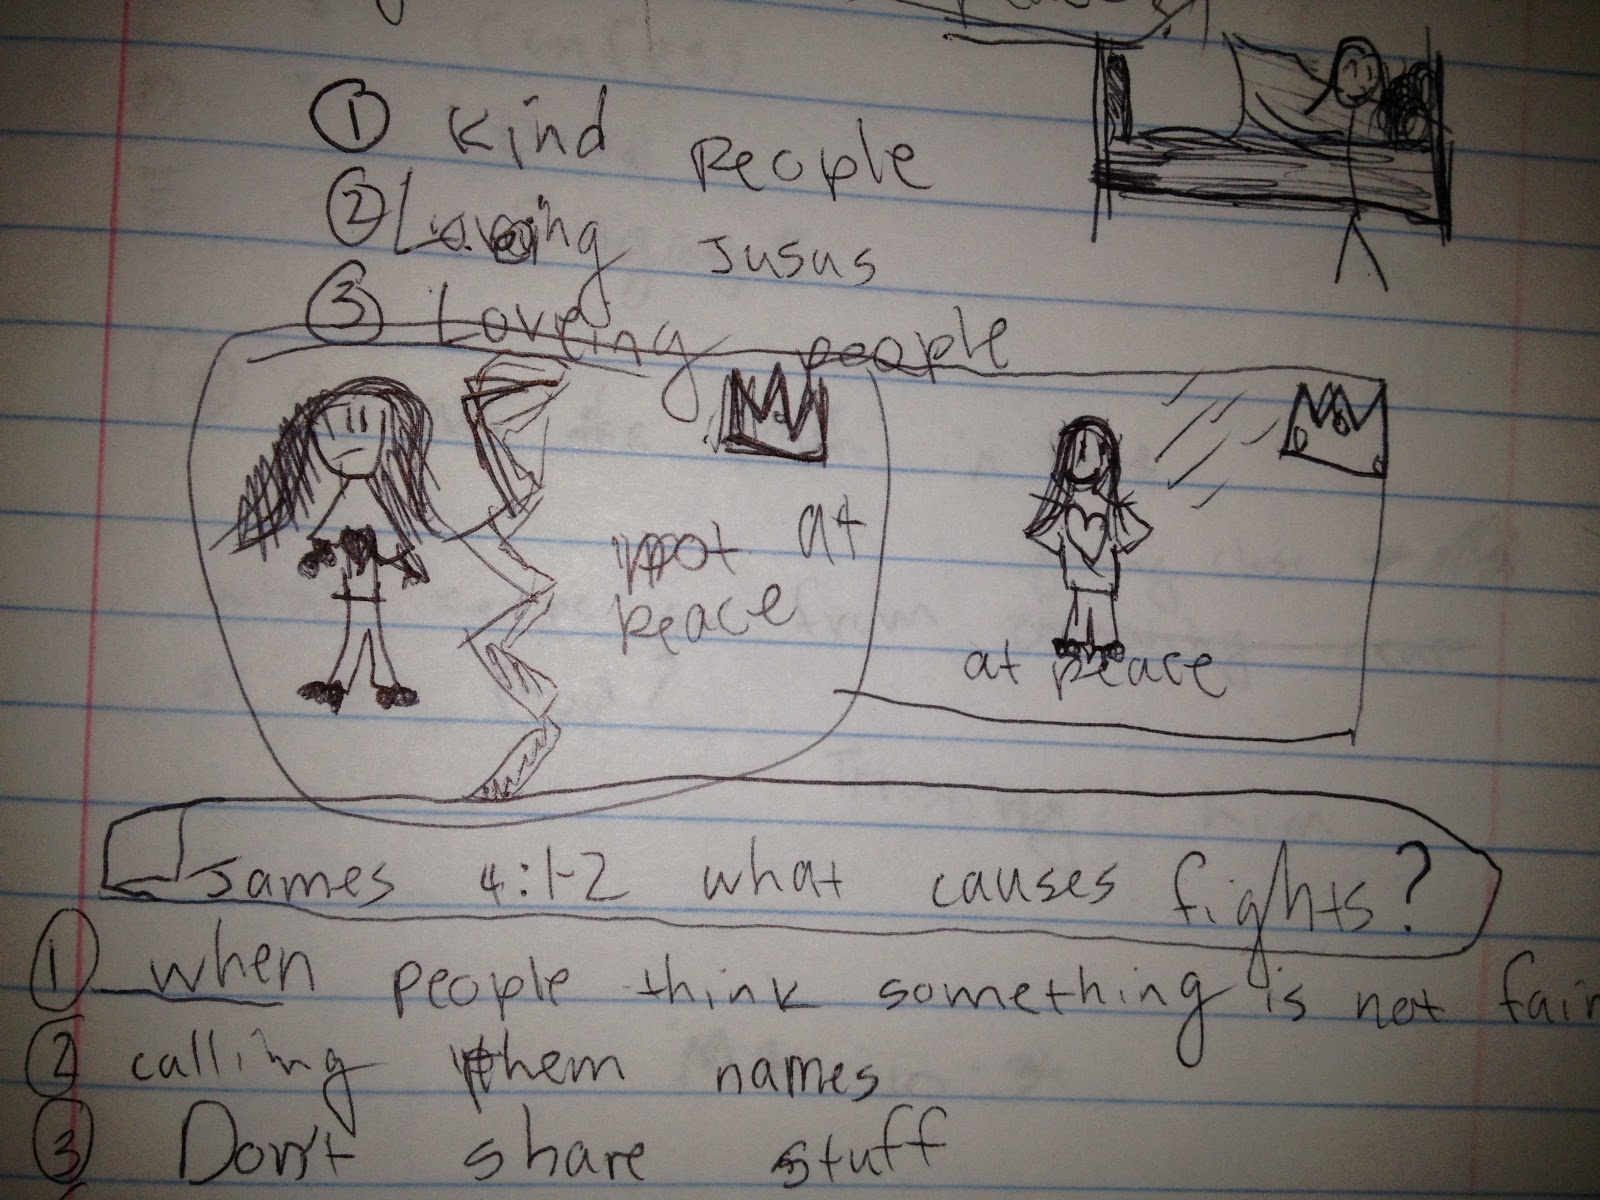 ① Kind people
② Loving Jusus
③ Loveing people
not at
peace
at peace
James 4:1-2 what causes fights?
① when people think something is not fair
② calling them names
③ Don't share stuff